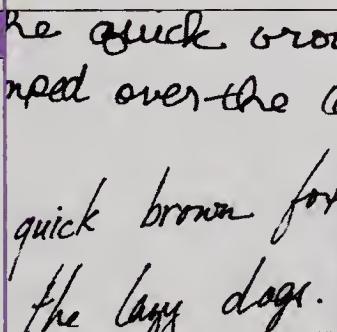 he quick brow
mped over the
quick brown fox
the lazy dogs.